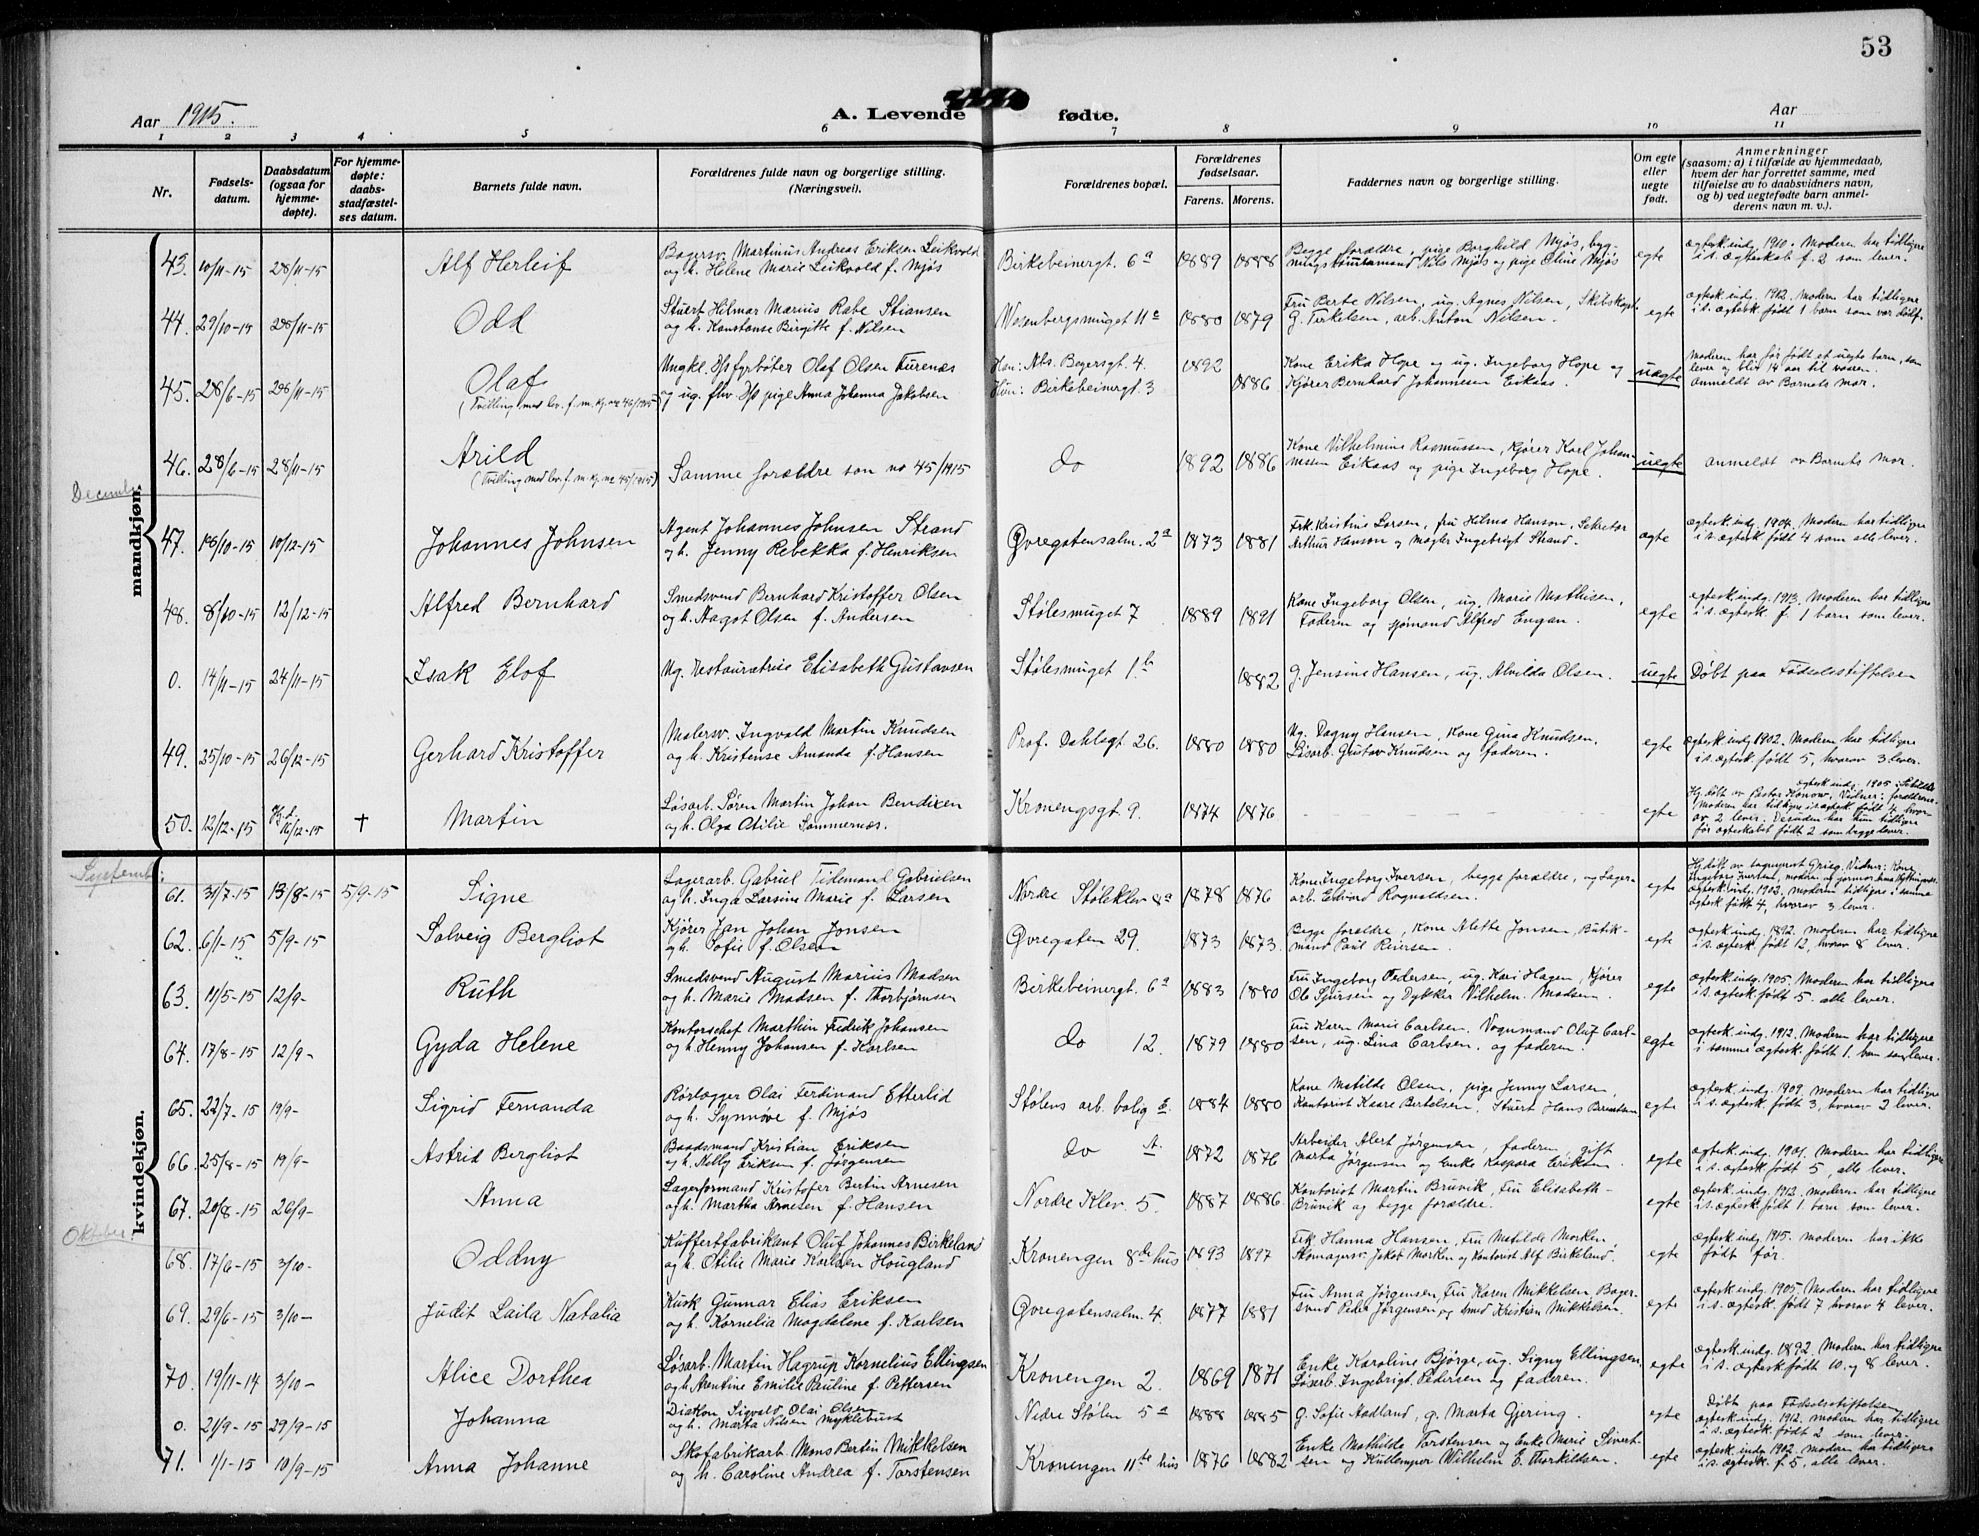 53
Aar 1915.
A. Levende fødte.
Aar
1 2 3 4 5 6 7 8 9 10 11
Nr.
Fødsels-
datum.
Daabsdatum
(ogsaa for
hjemme-
døpte).
For hjemme-
døpte:
daabs-
stadfæstel-
ses datum.
Barnets fulde navn.
Forældrenes fulde navn og borgerlige stilling.
(Næringsvei).
Forældrenes bopæl.
Forældrenes
fødselsaar.
Farens. Morens.
Faddernes navn og borgerlige stilling.
Om egte
eller
uegte
født.
Anmerkninger
(saasom: a) i tilfælde av hjemmedaab,
hvem der har forrettet samme, med
tilføielse av to daabsvidners navn,
og b) ved uegtefødte barn anmel-
derens navn m. v.).
mandkjøn.
43. 10/11-15 28/11-15 Alf Herleif
Bagersv. Martinus Andreas Eriksen Leikvold
og h. Helene Marie Leikvold f. Mjøs
Birkebeinergt. 6a 1889 1888
Begge forældre, pige Borghild Mjøs, byg-
ningstømmermand Nils Mjøs og pige Oline Mjøs
egte
ægtesk. indg. 1910. Moderen har tidligere
i s. ægteskab f. 2 som lever.
44. 29/10-15 28/11-15 Odd
Stuert Hilmar Marius Rabe Stiansen
og h. Konstanse Birgitte f. Nilsen
Wesenbergsmuget 11a 1880 1879
Fru Berte Nilsen, ug. Agnes Nilsen, Skibskapt.
G. Terkelsen, arb. Anton Nilsen.
egte
ægtesk. indg. 1912. Moderen har tidligere
i s. ægtesk. født 1 barn som var dødf.
45. 28/6-15 28/11-15 Olaf
(Tvilling med lev. f. m. kj. no 46/1915)
Ungk. D/s fyrbøter Olaf Olsen Furenæs
og ug. fhv. D/s pige Anna Johanna Jakobsen
Han: Abs. Beyersgt. 4.
Hun: Birkebeinergt. 3
1892 1886
Kone Erika Hope og ug. Ingeborg Hope og
Kjører Bernhard Johannesen Eikaas.
uægte
Moderen har før født et uegte barn, som
lever og blir 14 aar til vaaren.
anmeldt av Barnets mor.
46. 28/6-15 28/11-15 Arild
(Tvilling med lev. f. m. kj. no 45/1915)
Samme forældre som no 45/1915
do 1892 1886
Kone Vilhelmine Rasmussen, Kjører Karl Johan-
nessen Eikaas og pige Ingeborg Hope.
uegte
anmeldt av Barnets Mor.
Decembr.
47. 18/10-15 10/12-15 Johannes Johnsen
Agent Johannes Johnsen Strand
og h. Jenny Rebekka f. Henriksen
Øvregatensalm. 2a 1873 1881
Frk. Kristine Larsen, fru Hilma Hanson, Sekretær
Arthur Hanson og Mægler Ingebrigt Strand.
egte
ægtesk. indg. 1904. Moderen har tidligere
i s. ægtesk. født 4 som alle lever.
48. 8/10-15 12/12-15 Alfred Bernhard
Smedsvend Bernhard Kristoffer Olsen
og h. Aagot Olsen f. Andersen
Stølesmuget 7 1889 1891
Kone Ingeborg Olsen, ug. Marie Mathisen,
Faderen og sjømand Alfred Engan.
egte
egtesk. indg. 1913. Moderen har tidligere
i s. ægtesk. f. 1 barn som lever.
0. 14/11-15 24/11-15 Isak Elof
Ug. restauratrise Elisabeth Gustavsen
Stølesmuget 1b 1882
g. Jensine Hansen, ug. Alvilda Olsen.
uegte
Døbt paa Fødselsstiftelsen
49. 25/10-15 26/12-15 Gerhard Kristoffer
Malersv. Ingvald Martin Knudsen
og h. Kristense Amanda f. Hansen
Prof. Dahlsgt 26. 1880 1880
Ug. Dagny Hansen, Kone Gina Knudsen,
Løsarb. Gustav Knudsen og faderen.
egte
ægtesk. indg. 1902. Moderen har tidligere
i s. ægtesk. født 5, hvorav 3 lever.
50. 12/12-15 Hj.d. 16/12-15 † Martin
Løsarb. Søren Martin Johan Bendixen
og h. Olga Otilie Sommernæs.
Kronengsgt 9. 1874 1876
egte
ægtesk. indg. 1905
Hj. døbt av Pastor Konow. Vidner: forældrene.
Moderen har tidligere i s. ægtesk. født 4 hvor-
av 2 lever. Desuden har hun tidligere
før ægteskabet født 2 som begge lever.
kvindekjøn.
September
61. 31/7-15 13/8-15 5/9-15 Signe
Lagerarb. Gabriel Tidemand Gabrielsen
og h. Inga Larsine Marie f. Larsen
Nordre Støleklev 8a 1878 1876
Kone Ingeborg Iversen, begge forældre, og Lager-
arb. Edvard Rognaldsen.
egte
Hj. døbt av sogneprest Grieg. Vidner: Kone
Ingeborg Iversen, moder og jormor Anna
ægtesk. indg. 1903, moderen tidligere i samme
ægtesk født 4, hvorav 3 lever.
62. 6/1-15 5/9-15 Solveig Bergliot
Kjører Jan Johan Jonsen
og h. Sofie f. Olsen
Øvregaten 29. 1873 1873.
Begge forældre, Kone Alette Jonsen, Butik-
mand Paul Reiersen.
egte
ægtesk. indg. 1892. moderen har tidligere
i s. ægtesk. født 12, hvorav 8 lever.
63. 11/5-15 12/9- Ruth
Smedsvend August Marius Madsen
og h. Marie Madsen f. Thorbjørnsen
Birkebeinergt. 6a 1883 1880
Fru Ingeborg Pedersen, ug. Kari Hagen, Kjører
Ole Sjursen og Dykker Vilhelm Madsen.
egte
ægtesk. indg. 1905. Moderen har tidligere
i s. ægtesk. født 5, alle lever.
64. 17/8-15 12/9- Gyda Helene
Kontorschef Marthin Fredrik Johansen
og h. Henny Johansen f. Karlsen
do 12. 1879 1880
Fru Karen Marie Carlsen, Vognmand Oluf Carl-
sen, ug. Lina Carlsen, og faderen.
egte
ægtesk. indg. 1912. Moderen har tidligere
i samme ægtesk. født 1. barn som lever.
65. 22/7-15 19/9- Sigrid Fernanda
Rørlægger Olai Ferdinand Etterlid
og h. Synnöve f. Mjøs
Stølens arb. bolig E. 1884 1880
Kone Matilde Olsen, pige Jenny Larsen,
Kontorist Kaare Bertelsen, Stuert Hans Berentsen
egte
ægtesk. indg. 1909. moderen har tidligere
i s. ægtesk. født 3, hvorav 2 lever.
66. 25/8-15 19/9- Astrid Bergliot
Baadsmand Kristian Eriksen
og h. Nelly Eriksen f. Jørgensen
do A. 1872 1876
Arbeider Alert Jørgensen, faderen, gift
Marta Jørgensen og Enke Kaspara Eriksen.
egte
ægtesk. indg. 1901. Moderen har tidligere
i s. ægtesk. født 5, alle lever.
67. 20/8-15 26/9- Anna
Lagerformand Kristofer Bertin Arnesen
og h. Martha Arnesen f. Hansen
Nordre Klev 5. 1887 1886.
Kontorist Martin Bruvik, Fru Elisabeth
Bruvik og begge forældre.
egte
ægtesk. indg. 1913. moderen har tidligere
i s. ægtesk. født 1. barn som lever.
Oktober
68. 17/6-15 3/10- Oddny
Kuffertfabrikant Oluf Johannes Birkeland
og h. Otilie Marie Karlsen Hougland
Kronengen 8de hus 1893 1897
Frk. Hanna Hansen, fru Matilde Morken,
Skomagersv. Jakob Morken og Kontorist Alf Birkeland.
egte
ægtesk. indg. 1915. moderen har ikke
født før.
69. 29/6-15 3/10- Judit Laila Natalia
Kusk Gunnar Elias Eriksen
og h. Kornelia Magdalene f. Karlsen
Øvregatensalm. 4. 1877 1881
Fru Anna Jørgensen, Fru Karen Mikkelsen, Bager-
svend Peder Jørgensen, og Smed Kristian Mikkelsen.
egte
ægtesk. indg. 1905. Moderen har tidligere
i s. ægtesk. født 7 hvorav 4 lever.
70. 19/11-14 3/10- Alice Dorthea
Løsarb. Martin Hagrup Kornelius Ellingsen
og h. Arentine Emilie Pauline f. Pettersen
Kronengen 2. 1869 1871
Enke Karoline Bjørge, ug. Signy Ellingsen,
Løsarb. Ingebrigt Pedersen og faderen.
egte
ægtesk. indg. 1892. Moderen har tidligere
i s. ægtesk. født 10 og 8 lever.
0. 21/9-15 29/9-15 Johanna
Diakon Sigvald Olai Olsen
og h. Marta Nilsen Myklebust
Nedre Stølen 5a 1888 1885
g. Sofie Aadland, g. Marta Gjering.
egte
Døbt paa Fødselsstiftelsen
ægtesk. indg. 1912. moderen har tidligere
i s. ægtesk. født 2 som lever.
71. 1/1-15 10/9-15 Anna Johanne
Skofabrikarb. Mons Bertin Mikkelsen
og h. Caroline Andrea f. Torstensen
Kronengen 11te hus 1876 1882
Enke Mathilde Torstensen og Enke Marie Sivert-
sen og Kullemper Wilhelm E. Thorkildsen.
egte
ægtesk. indg. 1902. moderen har tidligere
i s. ægtesk. f. 5, alle lever.